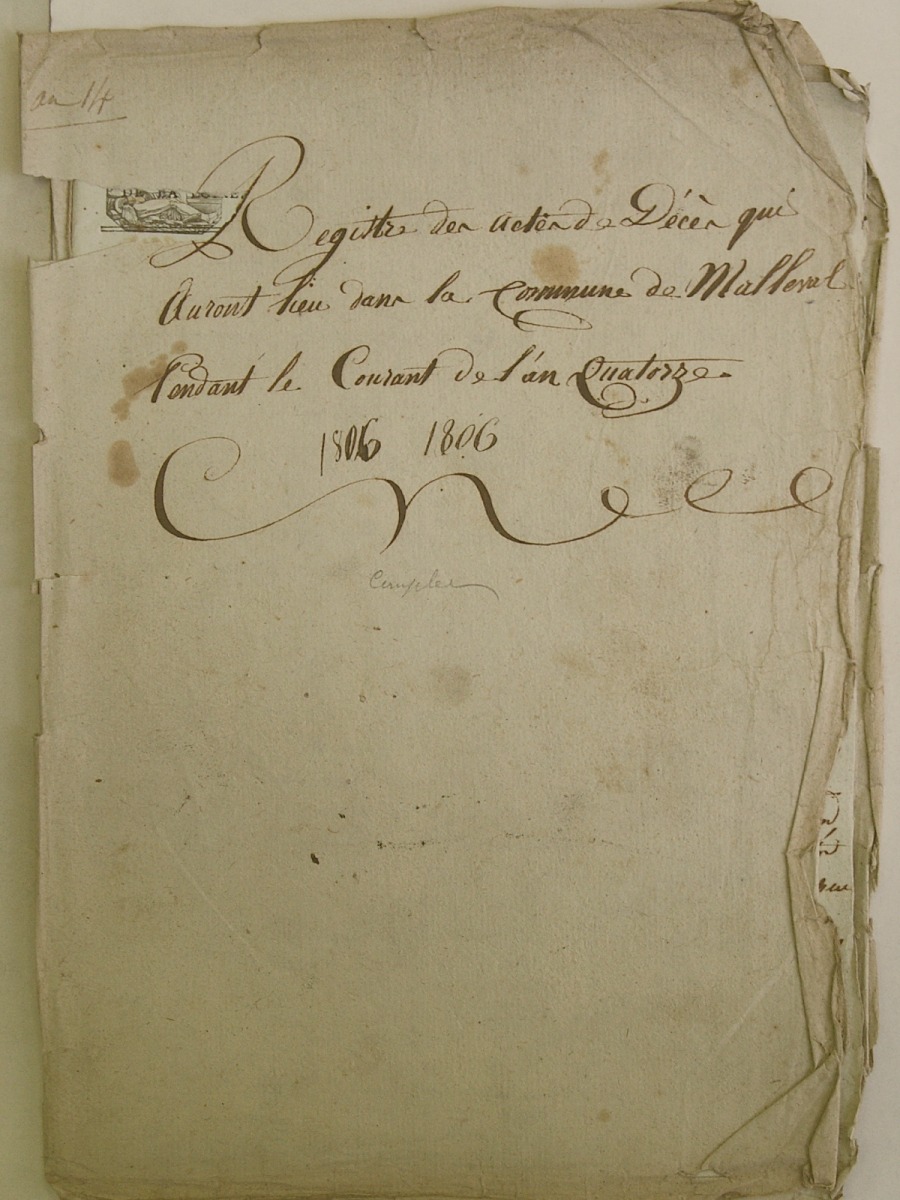 an 14
Registre des actes de Décès qui
Auront lieu dans la Commune de Malleval
Pendant le Courant de l'an Quatorze
1806 1806